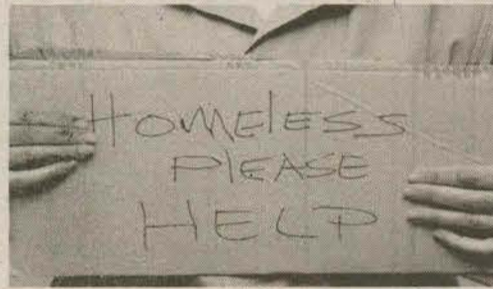 HOMElESS
PlEASE
HELP